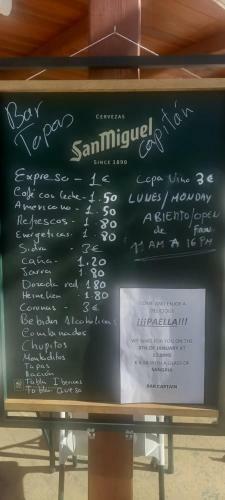 Bar
Tapas
Capitán
CERVEZAS
San Miguel
SINCE 1890
Expreso - 1€
Café con leche - 1.50
Americano - 1.50
Refrescos - 1.80
Energeticas - 1.80
Sidra 3€
Caña - 1.20
Jarra 1.80
Dorada red 1.80
Heineken 1.80
Coronas 3€
Bebidas Alcoholica
Combinados
Chupitos
Montaditos
Tapas
Ración
Tabla Ibericos
Tabla Queso
Copa Vino 3€
LUNES/MONDAY
ABIENTO/OPEN
de
11 AM A 16 PM
COME AND ENJOY A
DELICIOUS
¡¡¡PAELLA!!!
WE WAIT FOR YOU ON THE
OF JANUARY AT
WITH A GLASS OF
SANGRIA
BAR CAPTAIN